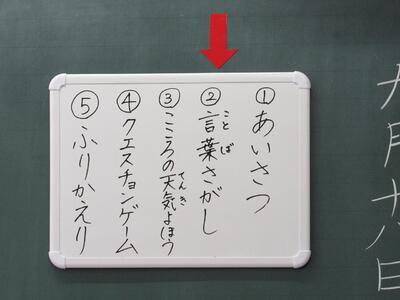 九月十八日
①あいさつ
②言葉さがし
ことば
③こころの天気よほう
てんき
④クエスチョンゲーム
⑤ふりかえり